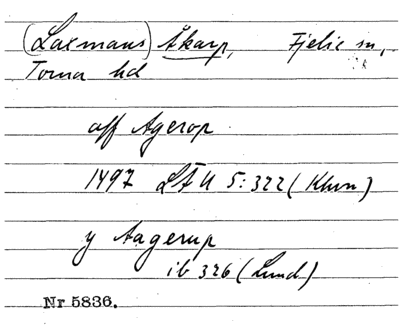 (Laxmans) Åkarp, Fjelie sn,
Torna hd
aff Agerop
1497 LÄU 5:322 (Khvn)
y Aagerup
ib 326 (Lund)
Nr 5836.